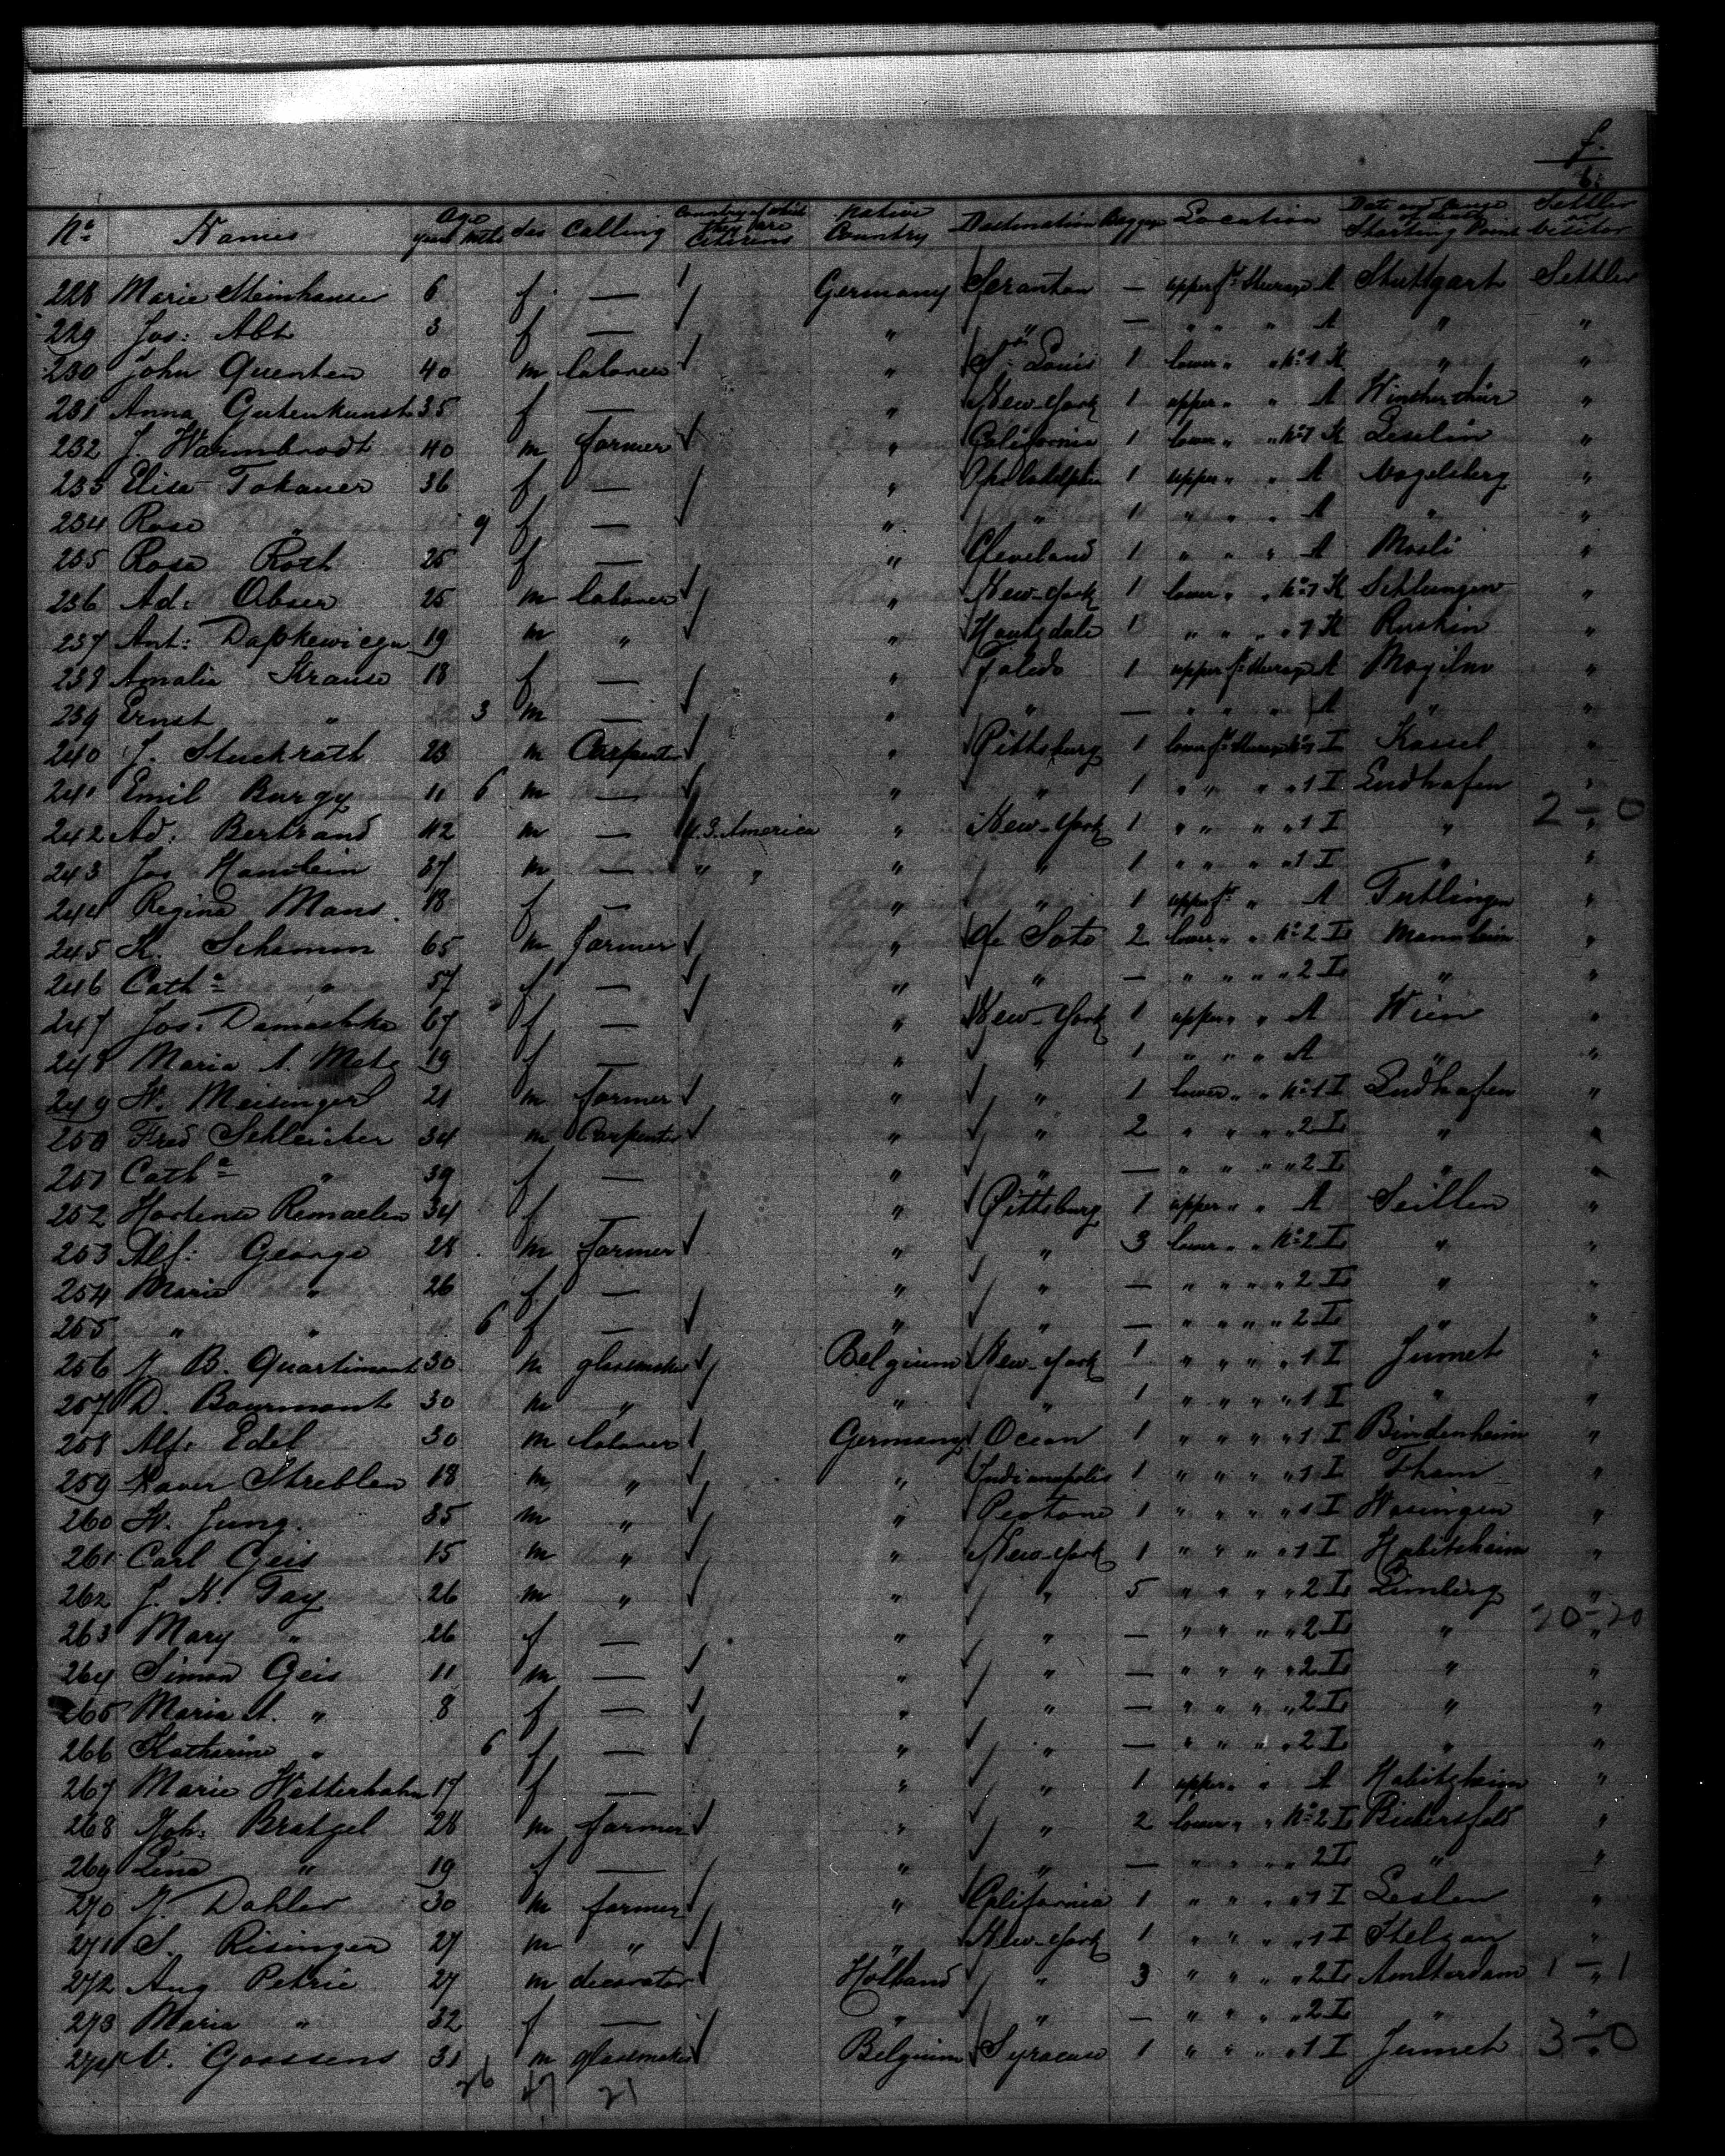 f.
6.
No Names Age Years Mths Sex Calling Country of which they are Citizens Native Country Destination Baggage Location Date and Cause of death Starting Point Settler or Visitor
228 Marie Steinhauser 6 f — Germany Scranton — upper fd Steerage A Stuttgart Settler
229 Jos: Abt 3 f — " " — " " " A " "
230 John Quenten 40 m laborer " St Louis 1 lower " " No 1 K " "
231 Anna Gutenkunst 35 f — " New-York 1 upper " " A Wintherthur "
232 J. Warmbrodt 40 m farmer " California 1 lower " " No 1 K "
233 Elise Tokauer 36 f — " Philadelphia 1 upper " " A Vogelsberg "
234 Rosa " 9 f — " " 1 " " " A " "
235 Rosa Roth 25 f — " Cleveland 1 " " " A Mosli "
236 Ad: Obser 25 m laborer " New-York 1 lower " " No 1 K Schlungen "
237 Ant: 19 m " " Houtzdale 1 " " " " 1 K Ruskin "
238 Amalie Krause 18 f — " Toledo 1 upper fd Steerage A Mogilno "
239 Ernst " 3 m — " " — " " " A " "
240 J. Stuckrath 23 m Carpenter " Pittsburg 1 lower fd Steerage No 1 I Kassel "
241 Emil Burgy 11 6 m — " " 1 " " " " 1 I Endhafen "
242 Ad: Bertrand 42 m — U.S. America " New-York 1 " " " " 1 I " " 2 — 0
243 Jos Hanslein 37 m — " " " " 1 " " " " 1 I " "
244 Regina Mans 18 f — " " 1 upper fd " A Tuttlingen "
245 K. Schamm 65 m farmer " de Soto 2 lower " " No 2 I Mannheim "
246 Cath " 57 f — " " — " " " " 2 I " "
247 Jos: Damaschke 67 f — " New-York 1 upper " " A Wien "
248 Maria A. Metz 19 f — " " 1 " " " A " "
249 H. Meisinger 21 m farmer " " 1 lower " " No 1 I Endhafen "
250 Fred Schleicher 34 m Carpenter " " 2 " " " " 2 I " "
251 Cath " 39 f — " " — " " " " 2 I " "
252 Hortense Remaelen 34 f — " Pittsburg 1 upper " " A Seillen "
253 Alf: George 28 m farmer " " 3 lower " " No 2 I " "
254 Marie " 26 f — " " — " " " " 2 I " "
255 " " 6 f — " " — " " " " 2 I " "
256 J B. Quartimont 30 m glassmaker Belgium New-York 1 " " " " 1 I Jumet "
257 D. Bourmont 30 m " " " 1 " " " " 1 I " "
258 Alf: Edel 30 m laborer Germany Ocean 1 " " " " 1 I Bindenheim "
259 Xaver Streblen 18 m " " Indianapolis 1 " " " " 1 I Tham "
260 H. Jung. 35 m " " Peotone 1 " " " " 1 I Wasingen "
261 Carl Geis 15 m " " New-York 1 " " " " 1 I Habitzheim "
262 J. K. Fay 26 m " " " 5 " " " " 2 I Limberg "
263 Mary " 26 f — " " — " " " " 2 I " " 20 - 20
264 Simon Geis 11 m — " " — " " " " 2 I " "
265 Maria A. " 8 f — " " — " " " " 2 I " "
266 Katharine " 6 f — " " — " " " " 2 I " "
267 Marie Watterhahn 17 f — " " 1 upper " " A Habitzheim "
268 Joh: Bratzel 28 m farmer " " 2 lower " " No 2 I Bietersfeld "
269 Lina " 19 f — " " — " " " " 2 I " "
270 J. Dahler 30 m farmer " California 1 " " " " 1 I Leslen "
271 S. Risinger 27 m " " New-York 1 " " " " 1 I Stelzan "
272 Aug Petrie 27 m decorator Holland " 3 " " " " 2 I Amsterdam " 1 — 1
273 Maria " 32 f — " " — " " " " 2 I " "
274 V. Goossens 31 m glassmaker Belgium Syracuse 1 " " " " 1 I Jumet " 3 — 0
26 47 21